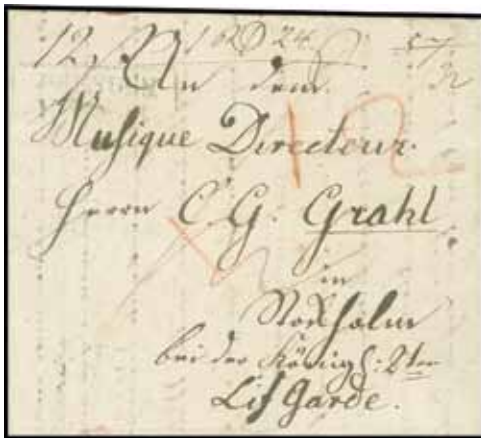 12. An dem
Musique Directeur
Herrn C. G. Grahl.
in
Stockholm
bei der Königl: 2ten
Lif Garde.